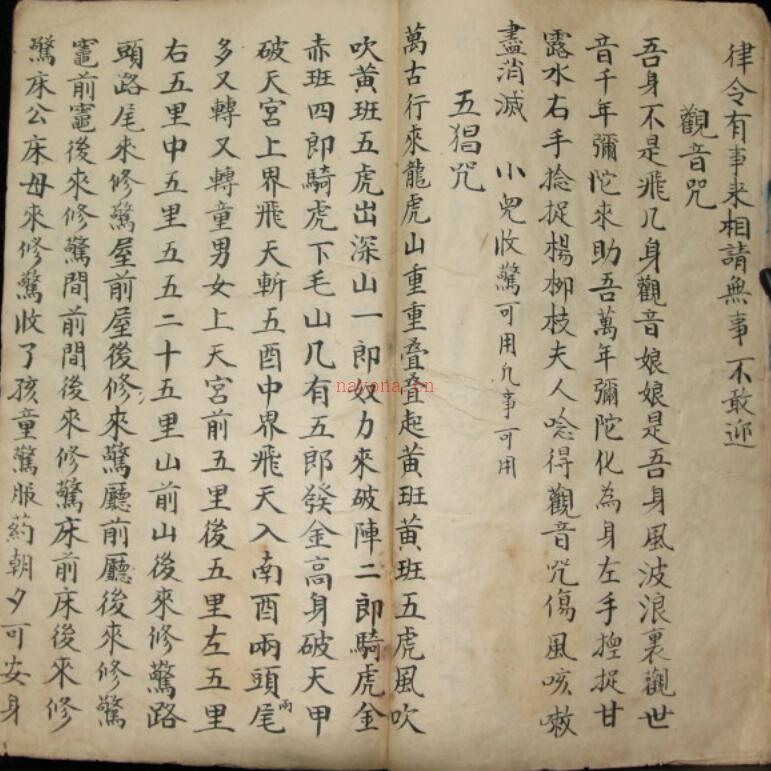 律令有事来相請無事不敢迎
觀音咒
吾身不是飛凡身觀音娘娘是吾身風波浪裏觀世
音千年彌陀來助吾萬年彌陀化為身左手捏捉甘
露水右手捻捉楊柳枝夫人唸得觀音咒傷風咳嗽
盡消滅 小兒收驚可用凡事可用
五猖咒
萬古行來龍虎山重重叠叠起黃班黃班五虎風吹
吹黃班五虎出深山一郎奴力來破陣二郎騎虎金
赤班四郎騎虎下毛山几有五郎發金高身破天甲
破天宮上界飛天斬五酉中界飛天入南酉兩頭尾
兩
多又轉又轉童男女上天宮前五里後五里左五里
右五里中五里五五二十五里山前山後來修驚路
頭路尾來修驚屋前屋後修來驚廳前廳後來修驚
竈前竈後來修驚間前間後來修驚床前床後來修
驚床公床母來修驚收了孩童驚脹葯朝夕可安身
nayona.cn